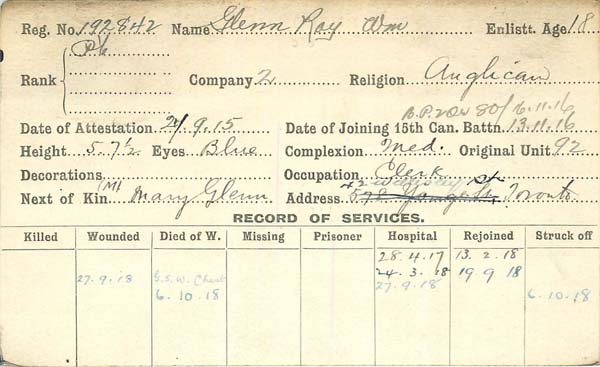 Reg. No. 192842 Name Glenn Ray Wm Enlistt. Age 18
Pte
Rank Company 2 Religion Anglican
B.P.2 Dx 80/16.11.16
Date of Attestation 21.9.15 Date of Joining 15th Can. Battn. 13.11.16
Height 5.7½ Eyes Blue Complexion Med. Original Unit 92
Decorations Occupation Clerk
42 Wellesley St.
Next of Kin (M) Mary Glenn Address Yonge St, Toronto
RECORD OF SERVICES.
Killed Wounded Died of W. Missing Prisoner Hospital Rejoined Struck off
28.4.17 13.2.18
27.9.18 G.S.W. Chest 24.3.18 19 9 18
6.10.18 27.9.18 6.10.18